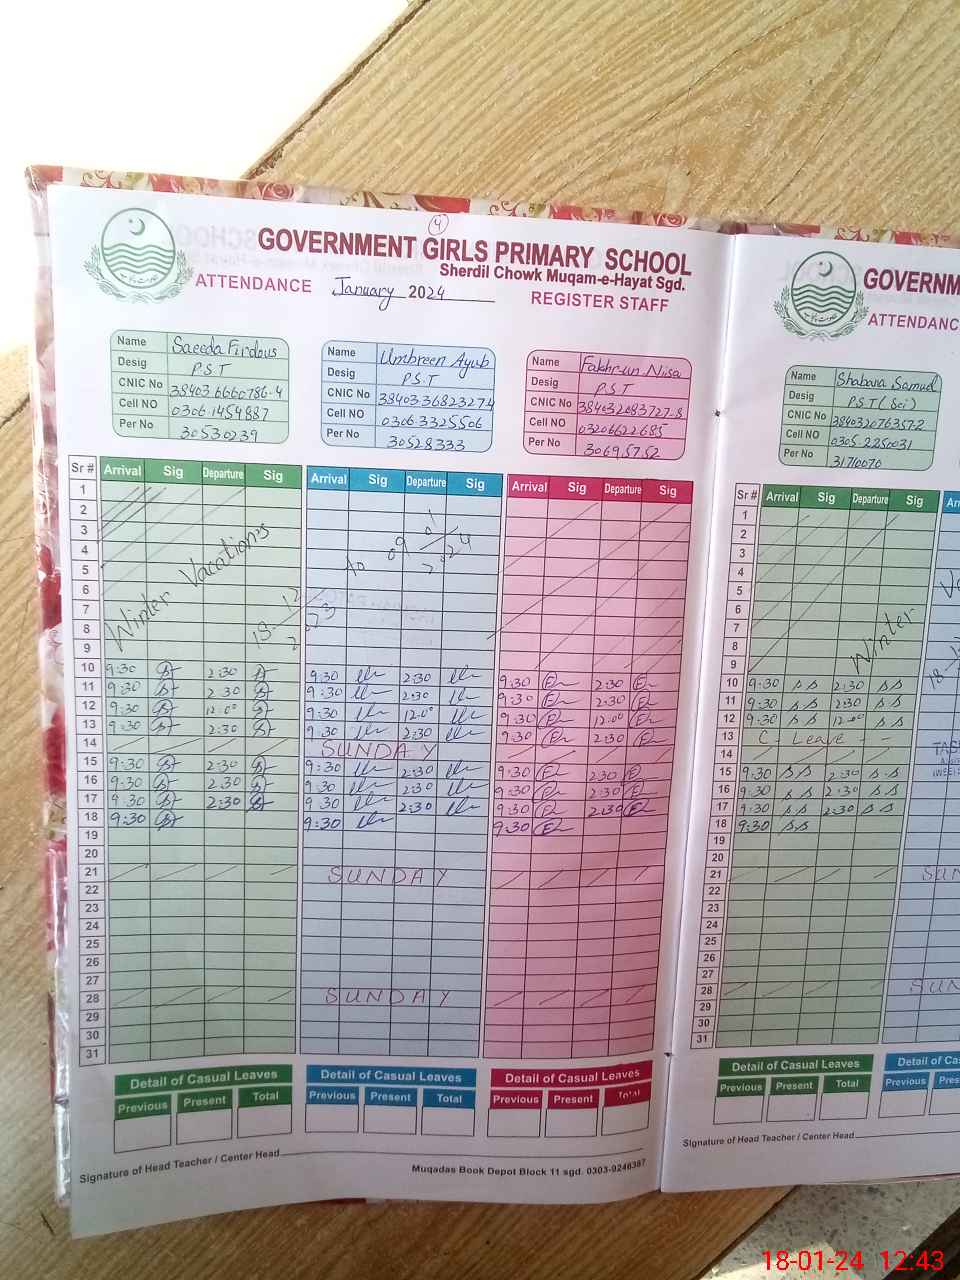 4
GOVERNMENT GIRLS PRIMARY SCHOOL
Sherdil Chowk Muqam-e-Hayat Sgd.
ATTENDANCE January 2024 REGISTER STAFF
Name Saeeda Firdous
Desig P.S.T
CNIC No 38403.6660786.4
Cell NO 0306.1454887
Per No 30530239
Name Umbreen Ayub
Desig P.S.T
CNIC No 3840336823274
Cell NO 0306.3325506
Per No 30528333
Name Fakhr-un Nisa
Desig P.S.T
CNIC No 384032083727-8
Cell NO 03206622685
Per No 30695752
Sr # Arrival Sig Departure Sig Arrival Sig Departure Sig Arrival Sig Departure Sig
1
2
3
4
5
6
7
8
9
Winter Vacations
18-12
2023
To 09 01
2024
10 9:30 2:30 9:30 2:30 9:30 2:30
11 9:30 2:30 9:30 2:30 9:30 2:30
12 9:30 12:00 9:30 12:00 9:30 12:00
13 9:30 2:30 9:30 2:30 9:30 2:30
14 SUNDAY
15 9:30 2:30 9:30 2:30 9:30 2:30
16 9:30 2:30 9:30 2:30 9:30 2:30
17 9:30 2:30 9:30 2:30 9:30 2:30
18 9:30 9:30 9:30
19
20
21 SUNDAY
22
23
24
25
26
27
28 SUNDAY
29
30
31
Detail of Casual Leaves Detail of Casual Leaves Detail of Casual Leaves
Previous Present Total Previous Present Total Previous Present Total
Signature of Head Teacher / Center Head
Muqadas Book Depot Block 11 sgd. 0303-9246387
GOVERNM
ATTENDANC
Name Shabana Samuel
Desig P.S.T (Sci)
CNIC No 384032076357-2
Cell NO 0305.2250031
Per No 31710070
Sr # Arrival Sig Departure Sig Arr
1
2
3
4
5
6
7
8
9
Winter
18-1
10 9:30 SS 2:30 SS
11 9:30 SS 2:30 SS
12 9:30 SS 12:00 SS
13 C- Leave - -
14
15 9:30 SS 2:30 SS
16 9:30 SS 2:30 SS
17 9:30 SS 2:30 SS
18 9:30 SS
19
20
21 SUN
22
23
24
25
26
27
28 SUN
29
30
31
Detail of Casual Leaves Detail of Ca
Previous Present Total Previous Pres
Signature of Head Teacher / Center Head
18-01-24 12:43